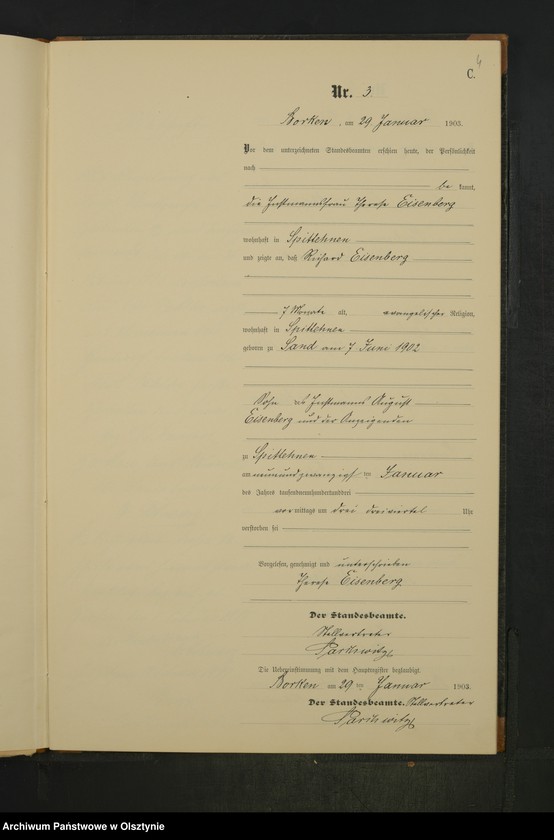 4
C.
Nr. 3
Borken, am 29. Januar 1903.
Vor dem unterzeichneten Standesbeamten erschien heute, der Persönlichkeit
nach
be kannt,
die Instmannsfrau Therese Eisenberg
wohnhaft in Spittehnen
und zeigte an, daß Richard Eisenberg
7 Monate alt, evangelischer Religion,
wohnhaft in Spittehnen
geboren zu Sand am 7 Juni 1902
Sohn des Instmanns August
Eisenberg und der Anzeigenden
zu Spittehnen
am neunundzwanzigsten Januar
des Jahres tausendneunhundertunddrei
vormittags um drei dreiviertel Uhr
verstorben sei
Vorgelesen, genehmigt und unterschrieben
Therese Eisenberg
Der Standesbeamte.
Stellvertreter
Die Uebereinstimmung mit dem Hauptregister beglaubigt
Borken am 29 ten Januar 1903.
Der Standesbeamte. Stellvertreter
Archiwum Państwowe w Olsztynie